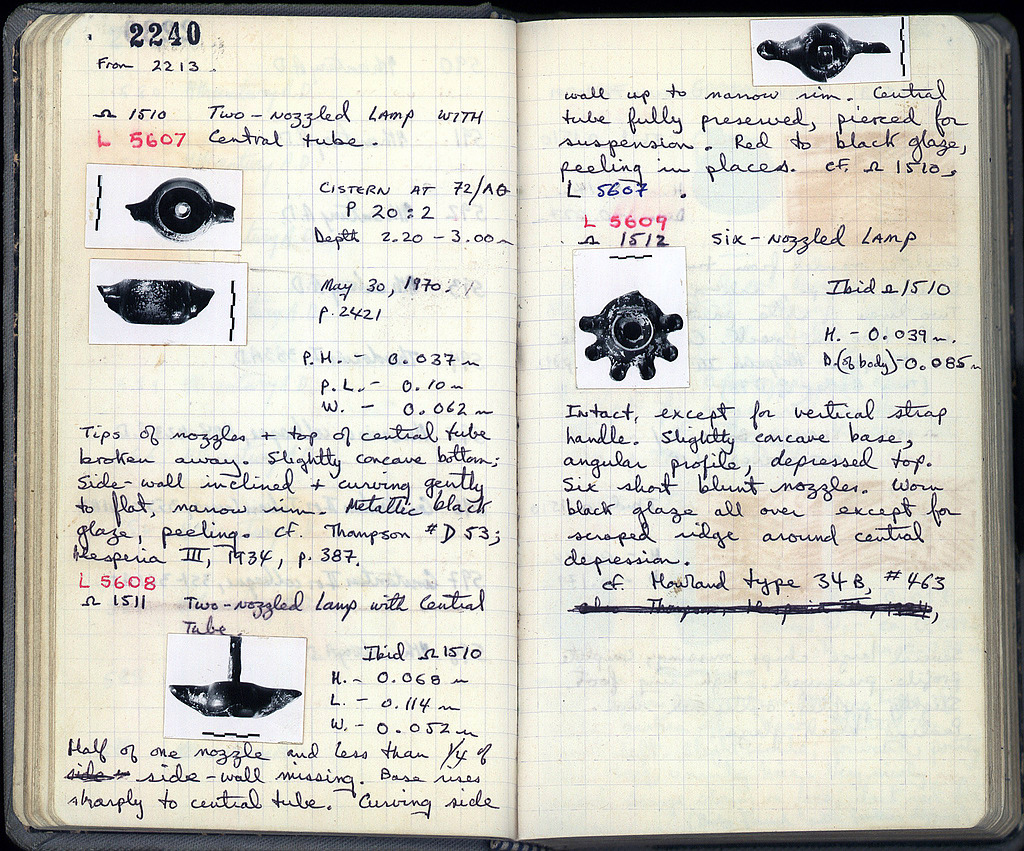 2240
From 2213.
Ω 1510 Two-nozzled Lamp with
L 5607 Central tube.
Cistern at 72/ΛΘ
P. 20:2
Depth 2.20 - 3.00 m
May 30, 1970.
p. 2421
P.H. - 0.037 m
P.L. - 0.10 m
W. - 0.062 m
Tips of nozzles + top of central tube
broken away. Slightly concave bottom;
side-wall inclined + curving gently
to flat, narrow rim. Metallic black
glaze, peeling. cf. Thompson # D 53;
Hesperia III, 1934, p. 387.
L 5608
Ω 1511 Two-nozzled Lamp with Central
Tube.
Ibid Ω 1510
H. - 0.068 m
L. - 0.114 m
W. - 0.052 m
Half of one nozzle and less than 1/4 of
side-wall missing. Base rises
sharply to central tube. Curving side
wall up to narrow rim. Central
tube fully preserved, pierced for
suspension. Red to black glaze,
peeling in places. cf. Ω 1510,
L 5607.
L 5609
Ω 1512 Six-nozzled Lamp
Ibid Ω 1510
H. - 0.039 m.
D. (of body) - 0.085 m
Intact, except for vertical strap
handle. Slightly concave base,
angular profile, depressed top.
Six short blunt nozzles. Worn
black glaze all over except for
scraped ridge around central
depression.
cf. Howland type 34 B, # 463